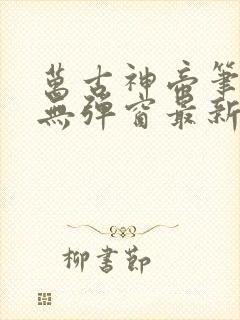 萬古神帝筆
無彈窗最新
柳書節